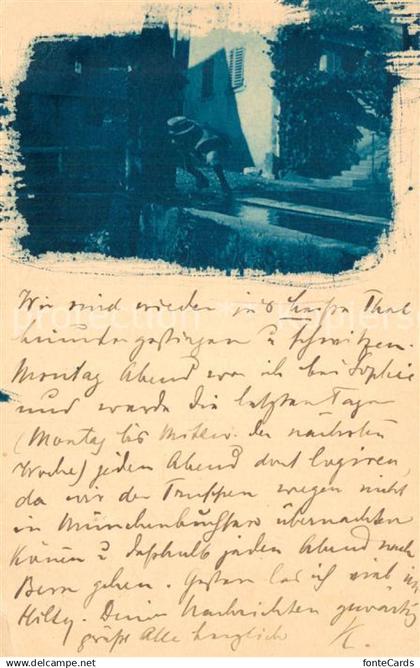 Wir sind wieder in's heisse Thal
hinunter gestiegen u schwitzen.
Montag Abend war ich bei Sophie
und werde die letzten Tage
(Montag bis Mittw. der nächsten
Woche) jeden Abend dort logiren,
da wir der Truppen wegen nicht
in Münchenbuchsee übernachten
können u deshalb jeden Abend nach
Bern gehen. Gestern las ich viel in
Hilty. Deine Nachrichten gewärtig
grüsst Alle herzlich
© www.delcampe.net / fonteCards